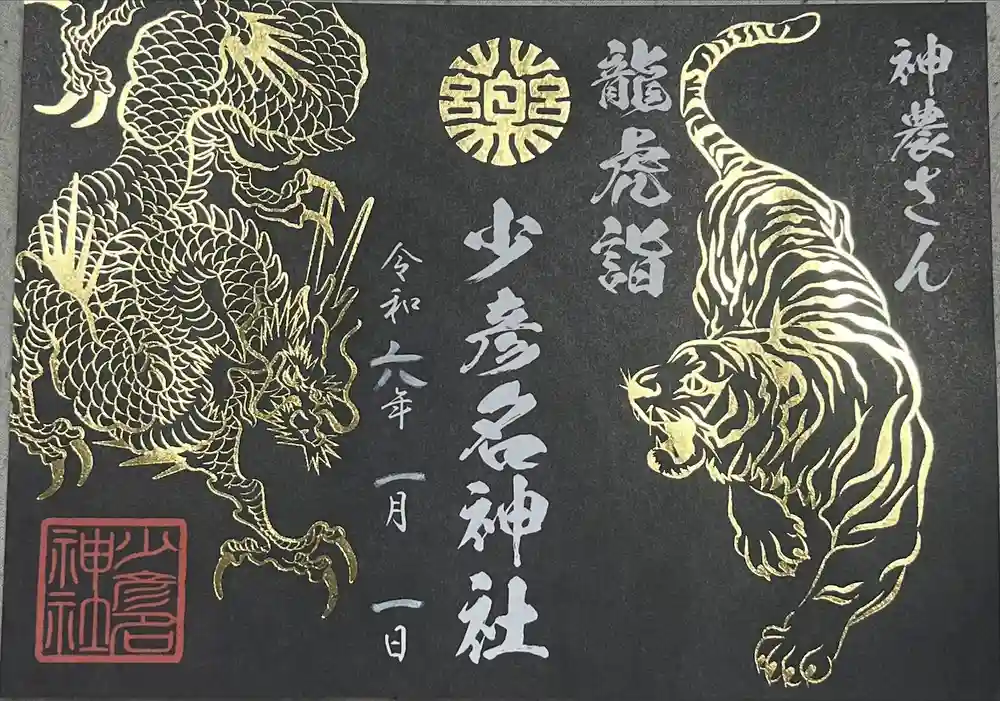 神農さん
龍虎詣
少彦名神社
令和六年 一月 一日
少彦名
神社